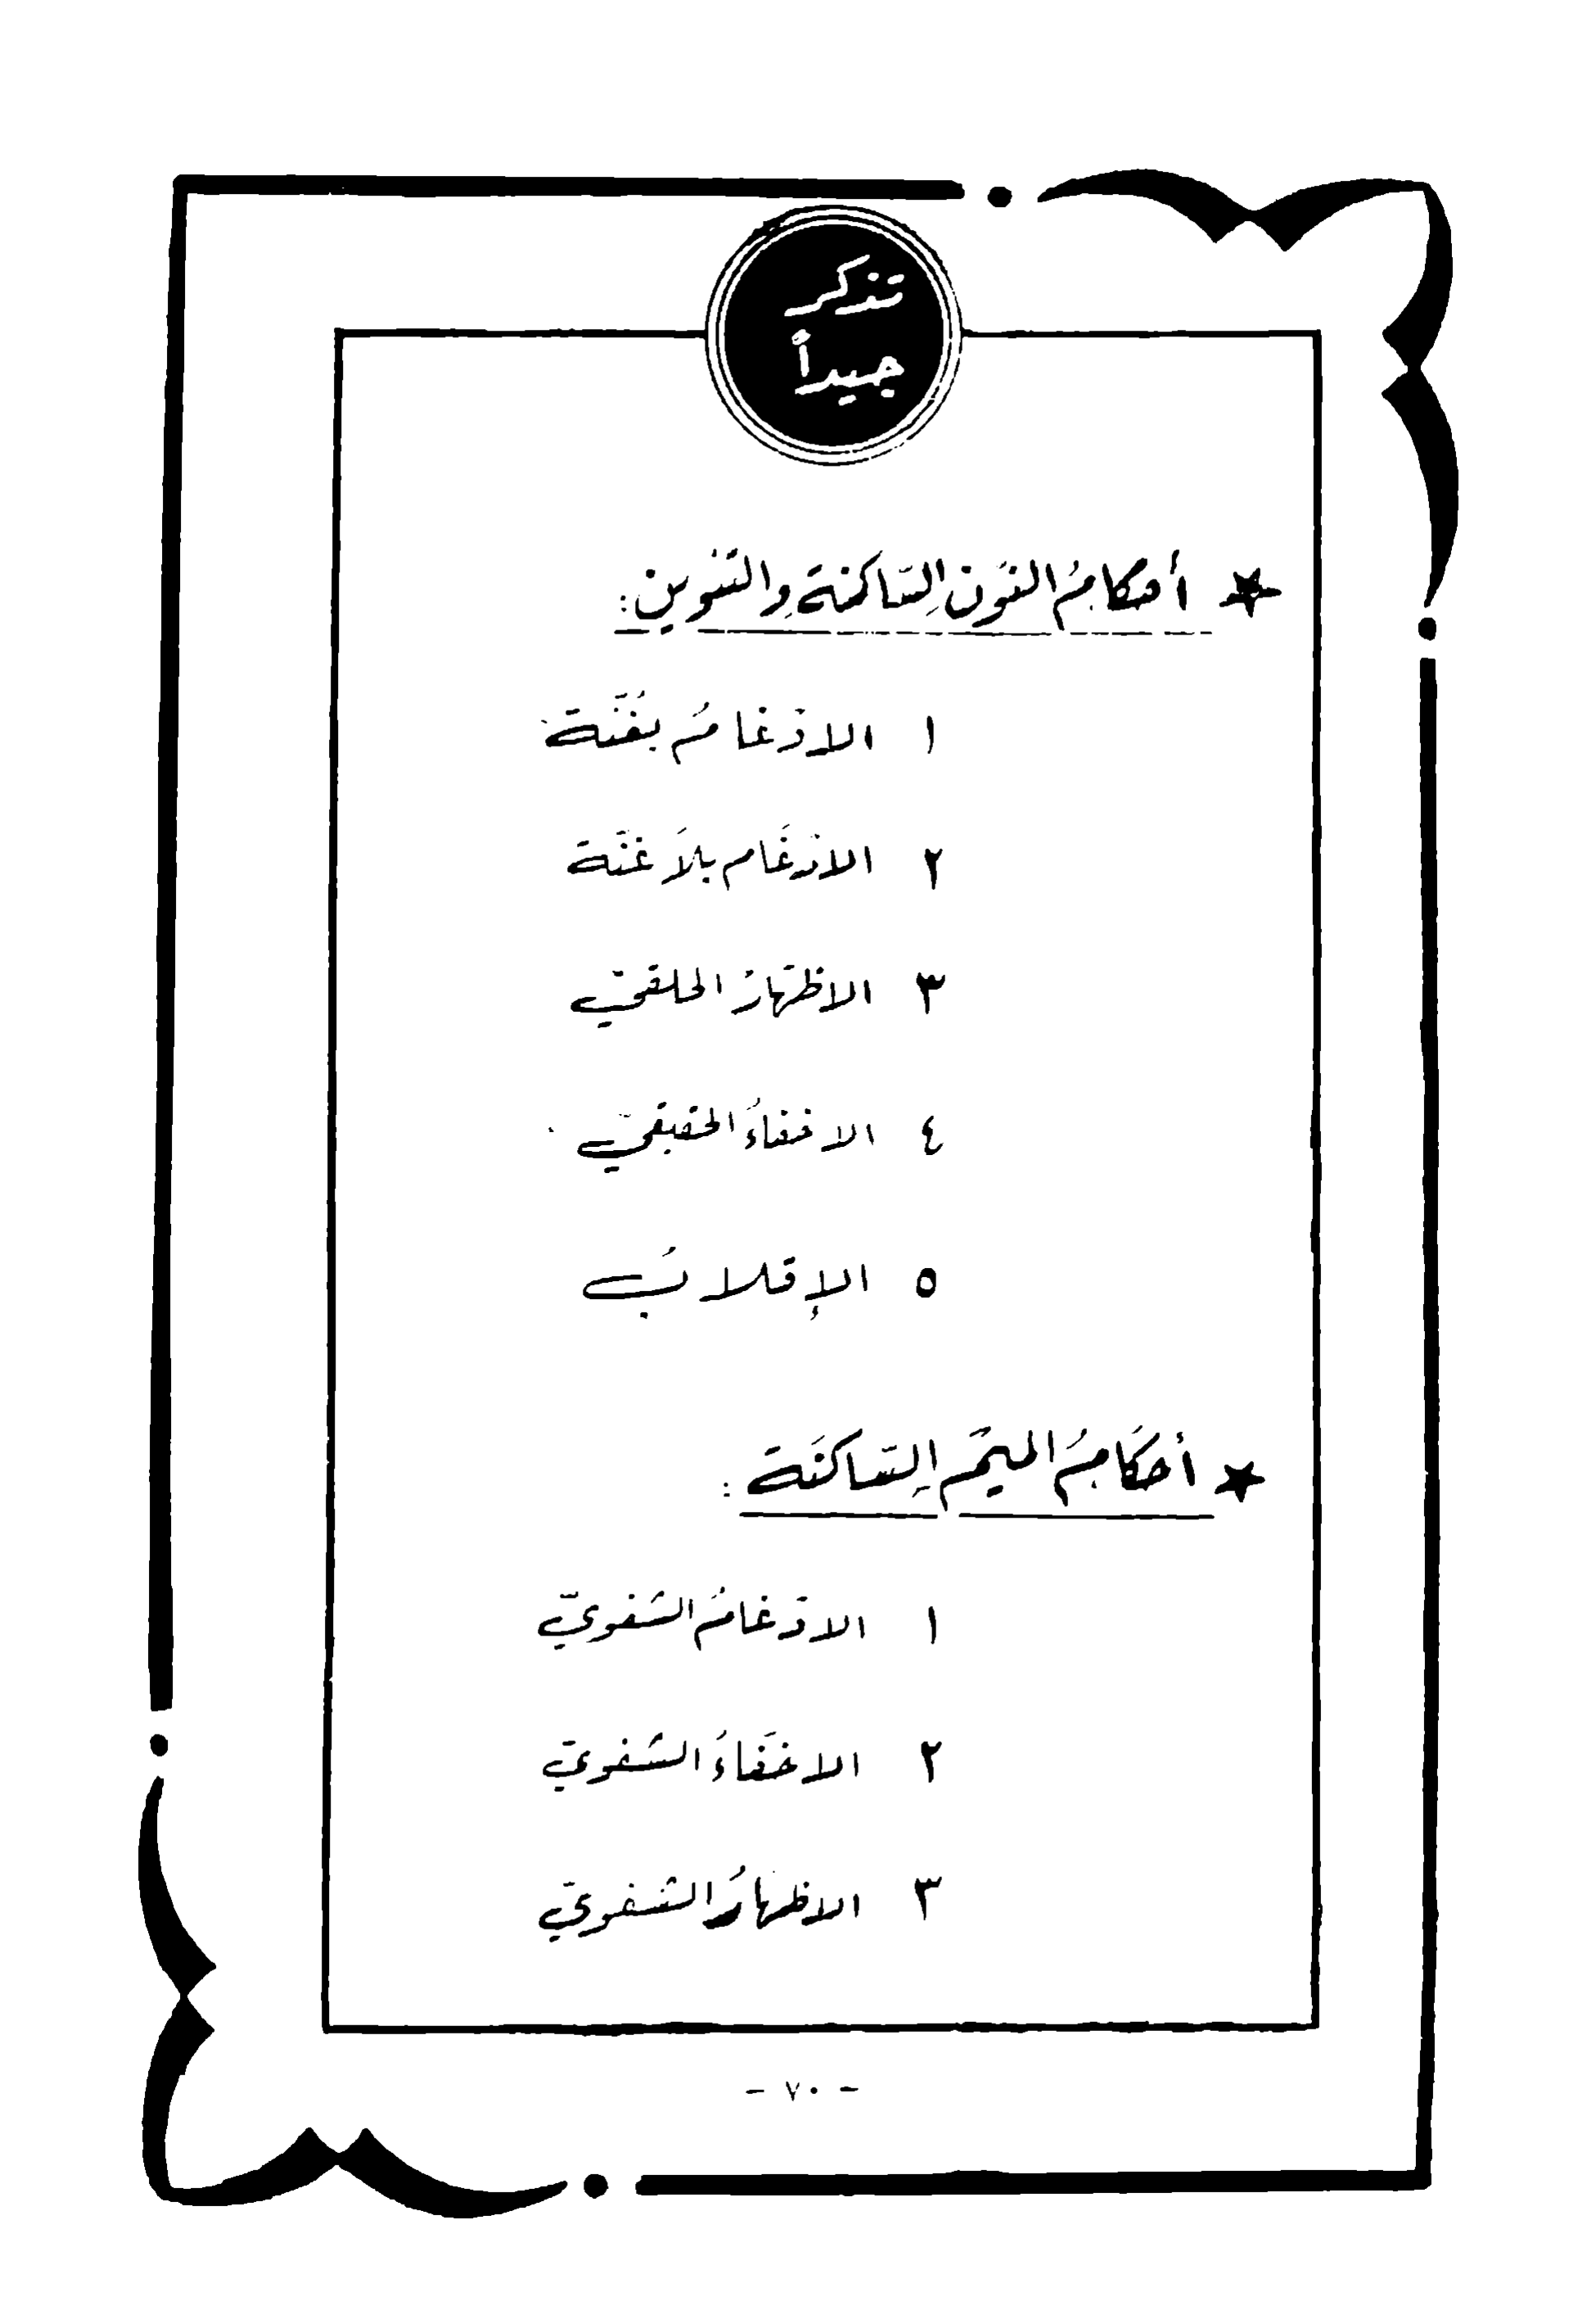 تذكر
جيداً
★ أحكامُ النوُن السّاكنة والتنوين:
١ الادغامُ بغُنّة
٢ الادْغَام بلاَ غنّة
٣ الاظهَارُ الحلقيّ
٤ الاخفاءُ الحقيقيّ
٥ الإقلابُ
★ أحكَامُ الميمْ السّاكنَة :
١ الادغامُ الشفويّ
٢ الاخفَاءُ الشفويّ
٣ الاظهَارُ الشفويّ
- ٧٠ -